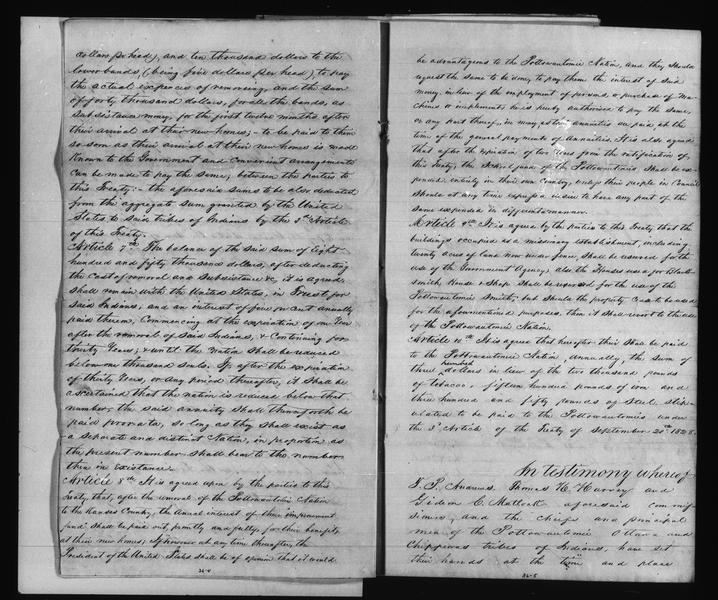 dollars per head), and ten thousand dollars to the
lower bands, (being five dollars per head), to pay
the actual expences of removing, and the sum
of forty thousand dollars, for all the bands, as
subsistance money, for the first twelve months, after
their arrival at their new homes; - to be paid to them
so soon as their arrival at their new homes is made
known to the Government and convenient arrangements
can be made to pay the same, between the parties to
this Treaty; - the aforesaid sums to be also deducted
from the aggregate sum granted by the United
States to said tribes of Indians by the 5th Article
of this Treaty.
Article 7th The balance of the said sum of Eight
hundred and fifty thousand dollars, after deducting
the Cost of removal and subsistance &c, it is agreed,
shall remain with the United States, in Trust for
said Indians, and an interest of five per cent annually
paid thereon, Commencing at the expiration of one Year
after the removal of said Indians, & Continuing for
thirty Years, & until the Nation shall be reduced
below one thousand souls. If, after the expiration
of thirty Years, or any period thereafter, it shall be
ascertained that the nation is reduced below that
number, the said annuity shall thenceforth be
paid pro rata, so long as they shall exist as
a separate and distinct Nation, in proportion as
the present number shall bear to the number
then in existance.
Article 8th It is agreed upon by the parties to this
Treaty that, after the removal of the Pottowautomie Nation
to the Kansas Country, the annual interest of their improvement
fund shall be paid out, promtly and fully, for their benefit,
at their new homes; If however at any time thereafter, the
President of the United States shall be of opinion that it would
36-4
be advantageous to the Pottowautomie Nation, and they should
request the same to be done, to pay them the interest of said
money in lieu of the employment of persons or purchase of ma-
chines or implements, he is hereby authorised to pay the same,
or any part thereof, in money, as their annuities are paid, at the
time of the general payment of annuities. It is also agreed
that after the expiration of two Years from the ratification of
this Treaty, the School fund of the Pottowautomies shall be ex-
pended entirely in their own Country, unless their people in Council
should at any time express a desire to have any part of the
same expended in different manner.
Article 9th It is agreed by the parties to this Treaty that the
buildings occupied as a missionary establishment, including
twenty acres of land now under fence, shall be reserved for the
use of the Government Agency, also the Houses used for black-
smith House & shop shall be reserved for the use of the
Pottowautomie Smith, but should the property Cease to be used
for the aforementioned purposes, then it shall revert to the use
of the Pottowautomie Nation.
Article 10th It is agreed that hereafter there shall be paid
to the Pottowautomie Nation, annually, the sum of
three hundred dollars in lieu of the two thousand pounds
of tobacco, fifteen hundred pounds of iron and
three hundred and fifty pounds of steel stip-
ulated to be paid to the Pottowautomies under
the 3d Article of the Treaty of September 20th 1828.
In testimony whereof
T. P. Andrews, Thomas H. Harvey and
Gideon C. Matlock aforesaid commis-
sioners, and the chiefs and principal
men of the Pottowautomie Ottawa and
Chippewas tribes of Indians, have set
their hands at the time and place
36-5